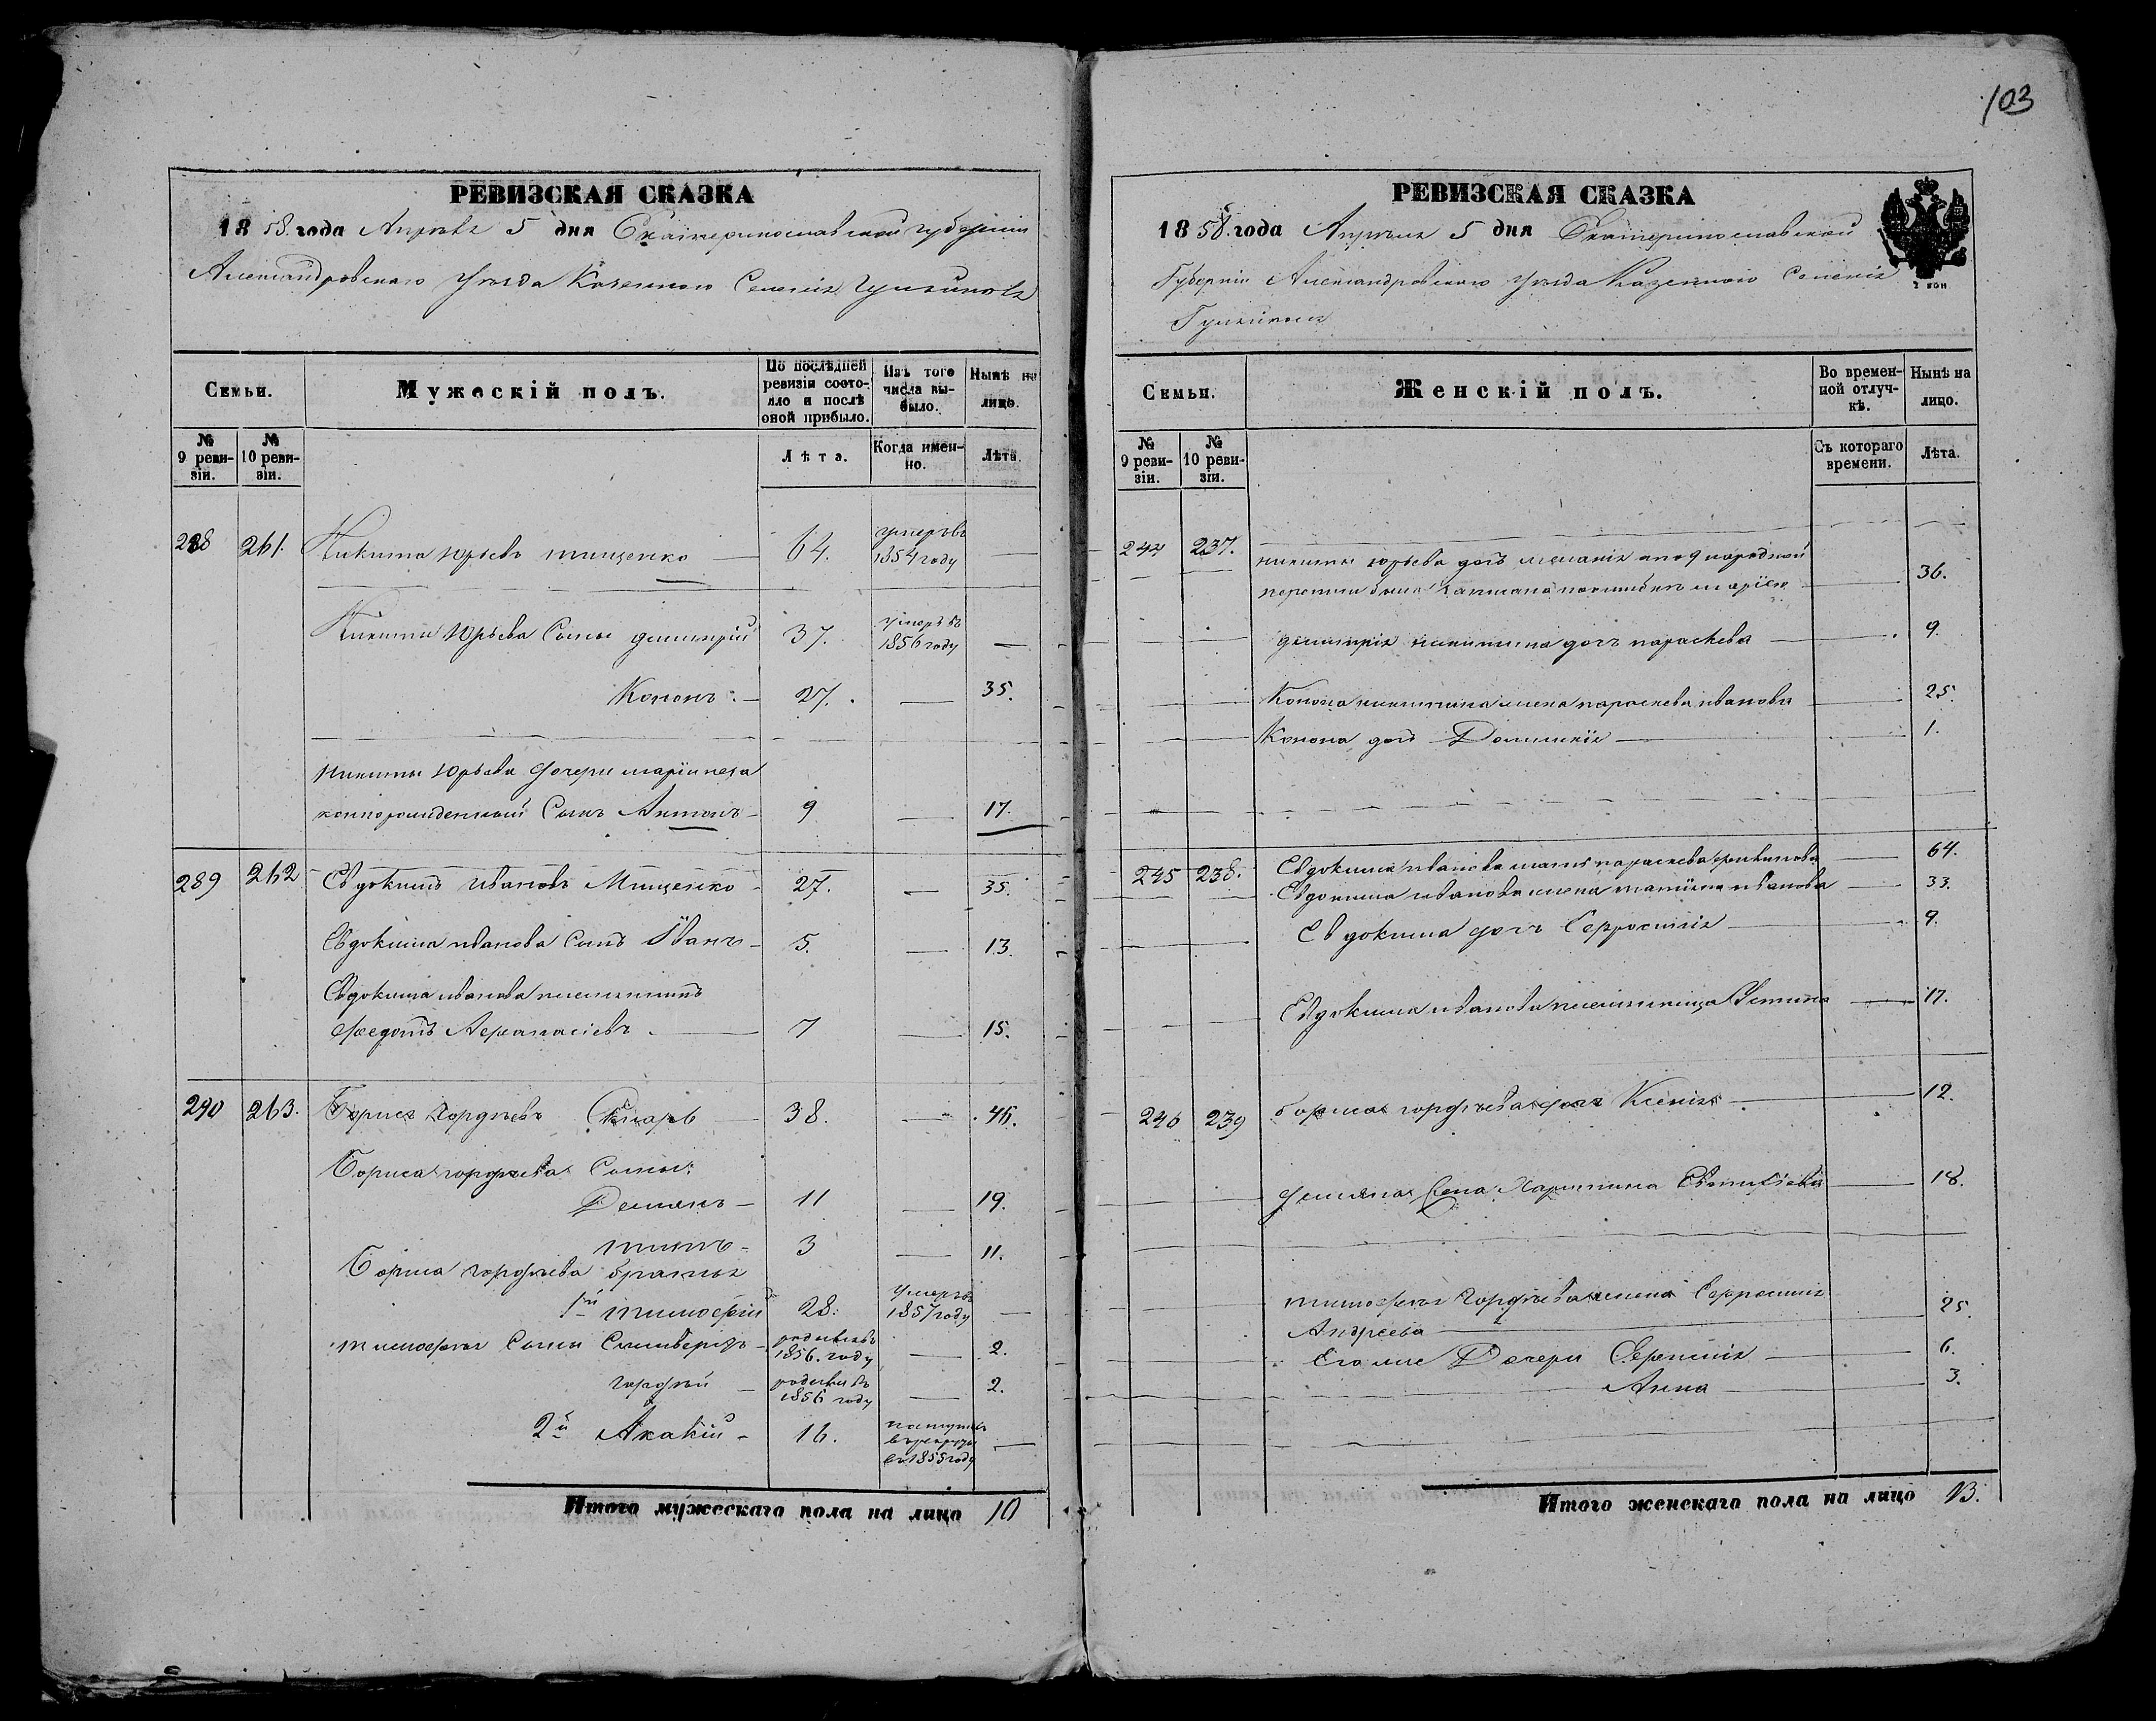 103
РЕВИЗСКАЯ СКАЗКА
1858. года Апрѣля 5 дня Екатеринославской губерніи
Александровскаго Уѣзда Казеннаго Селенія Гуляйполя
Семьи.
Мужескій полъ.
По послѣдней ревизіи состояло и послѣ оной прибыло.
Изъ того числа выбыло.
Нынѣ на лицо.
№ 9 ревизіи.
№ 10 ревизіи.
Лѣта.
Когда именно.
Лѣта.
288 261. Никита Юрьевъ Тищенко 64. умеръ въ 1854 году
Никиты Юрьева Сыны димитрій 37. умеръ въ 1856 году
Кононъ 27. 35.
Никиты Юрьева дочери маріи неза
коннорожденный Сынъ Антонъ 9 17.
289 262 Евдокимъ Ивановъ Мищенко 27. 35.
Евдокима иванова Сынъ Иванъ 5. 13.
Евдокима иванова племянникъ
Федотъ Афанасіевъ 7 15.
290 263. Борисъ Гордѣевъ 38. 46.
Бориса гордѣева Сыны:
Демьянъ 11 19.
титъ 3 11.
Бориса гордѣева братья
1й тимофій 28. Умеръ въ 1857 году
тимофея Сыны Сильверстъ родился въ 1856. году 2.
гордѣй родился въ 1856 году 2.
2й Акакій 16. поступилъ въ рекруты въ 1855 году
Итого мужескаго пола на лицо 10
РЕВИЗСКАЯ СКАЗКА
1858. года Апрѣля 5 дня Екатеринославской
Губерніи Александровскаго Уѣзда Казеннаго Селенія
Гуляйполя
Семьи.
Женскій полъ.
Во временной отлучкѣ.
Нынѣ на лицо.
№ 9 ревизіи.
№ 10 ревизіи.
Съ котораго времени.
Лѣта.
244 237. никиты юрьева дочь меланія а по 9 народной
переписи была показана маріею 36.
димитрія никитина дочь параскева 9.
Конона никитина жена параскева иванова 25.
Конона дочь Домникія 1.
245 238. Евдокима иванова мать параскева 64.
Евдокима иванова жена татіяна иванова 33.
Евдокима дочь Ефросинія 9.
Евдокима иванова племянница Устина 17.
246 239 бориса гордѣева дочь Ксенія 12.
демьяна жена Харитина 18.
тимофея Гордѣева жена Ефросинія
Андреева 25.
Его же Дочери 6.
Анна 3.
Итого женскаго пола на лицо 13.